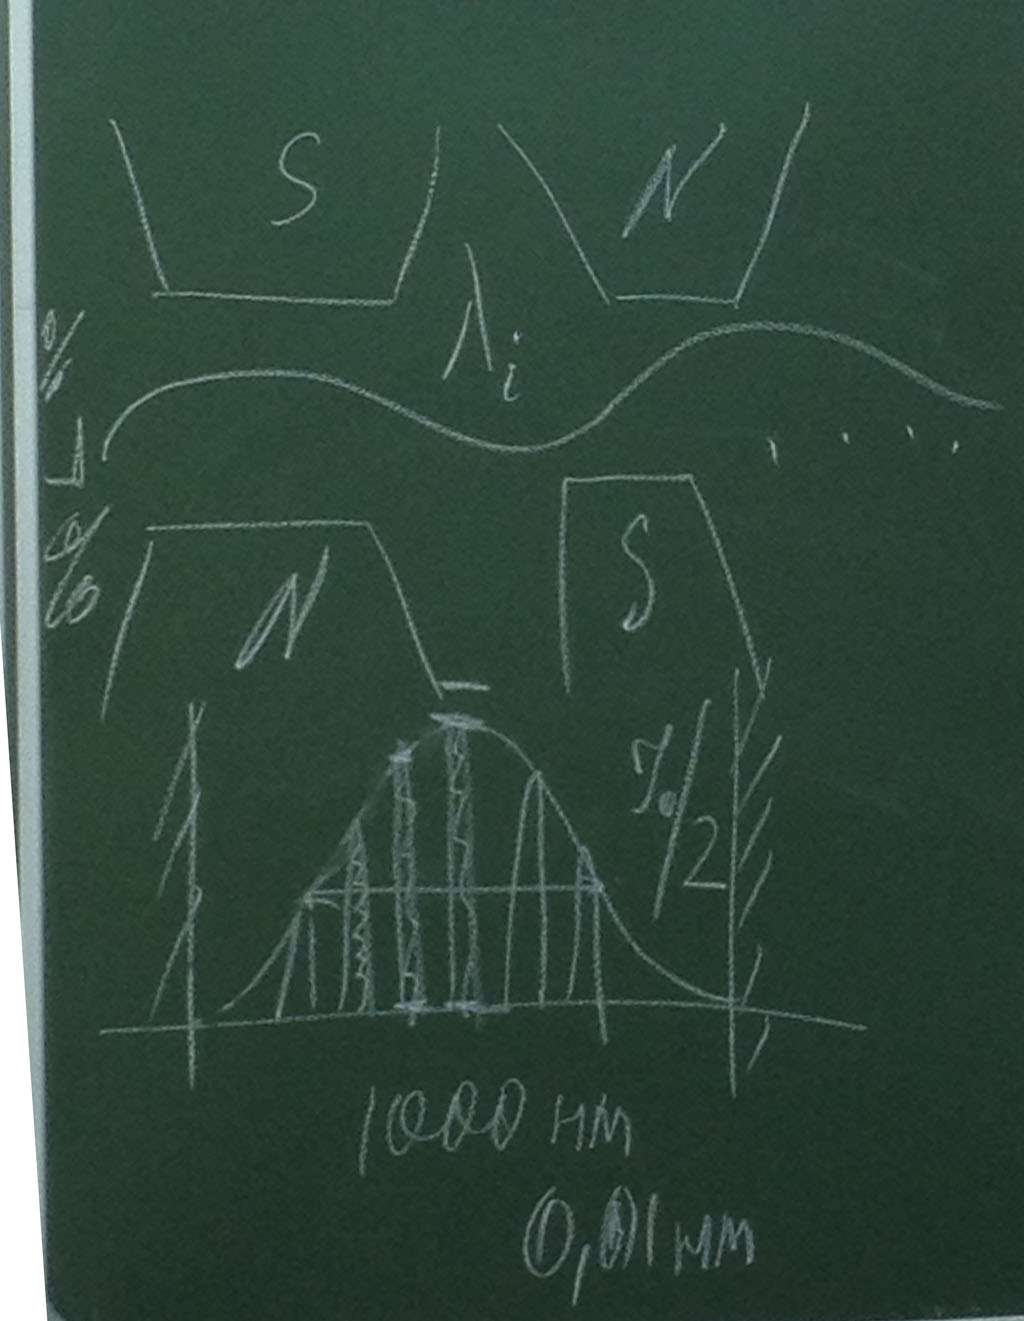 S
N
Λi
N
S
I₀/2
1000 нм
0,01 нм